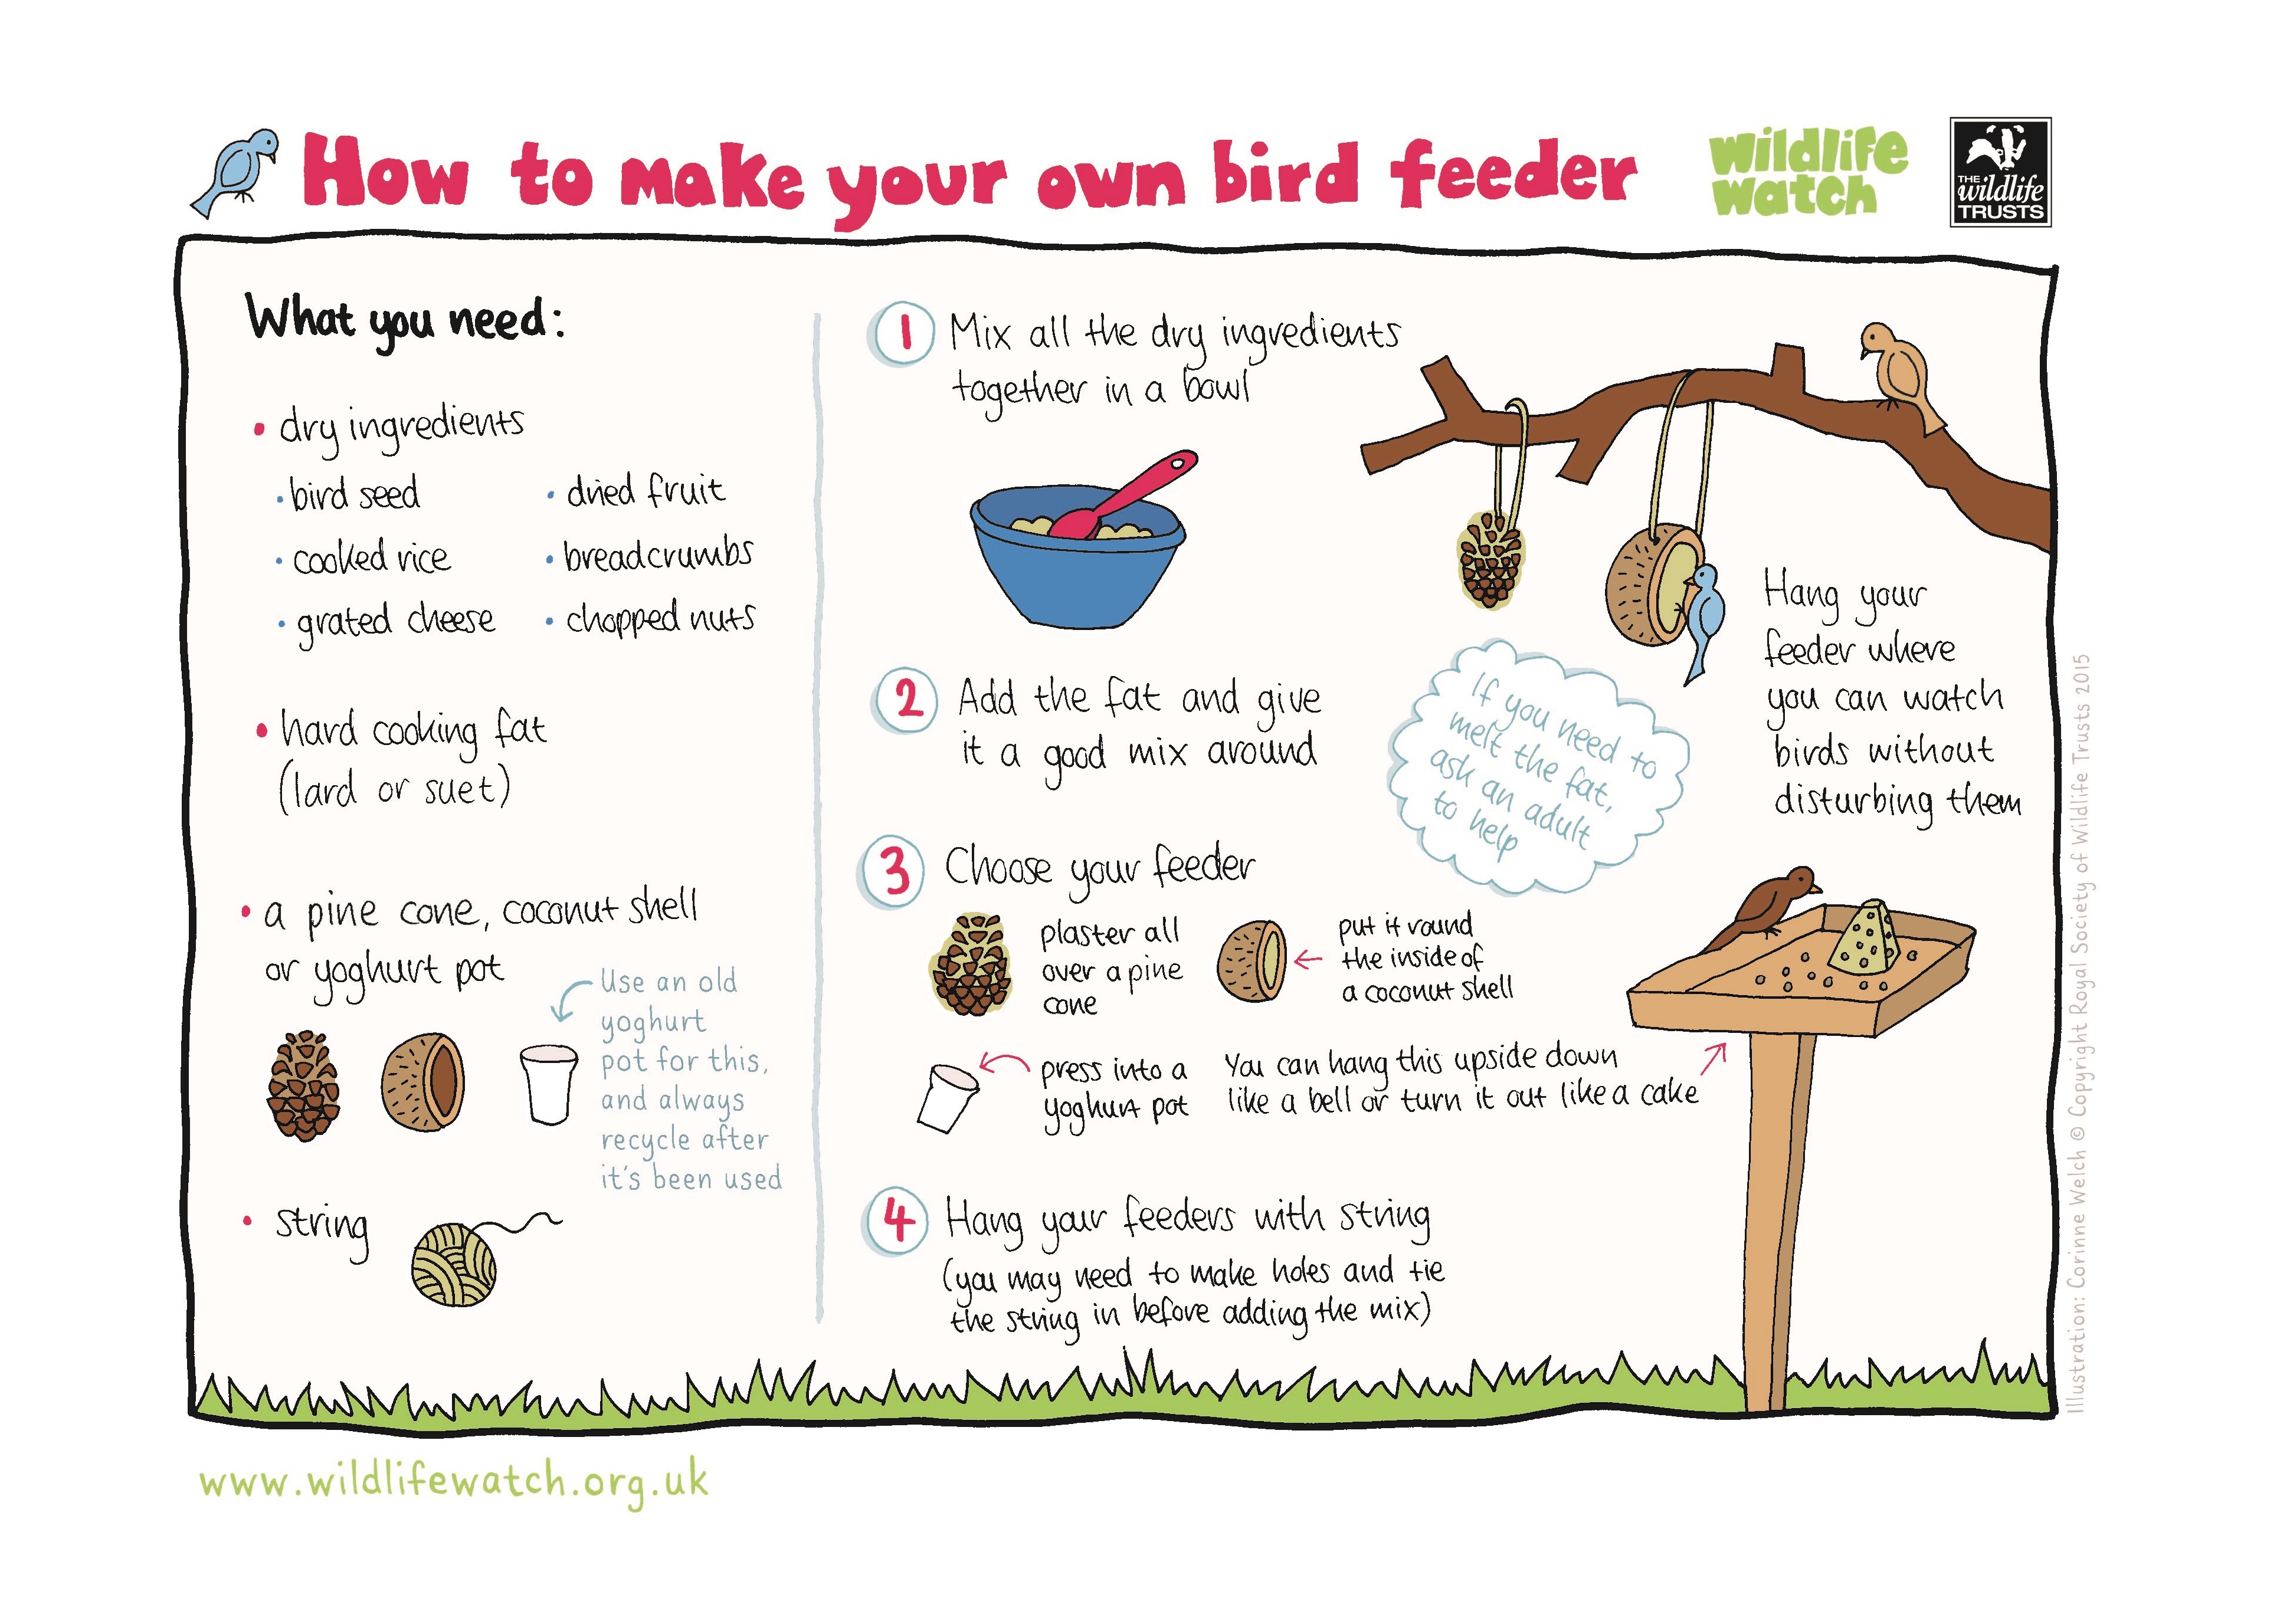 How to make your own bird feeder
wildlife
watch
THE
wildlife
TRUSTS
What you need:
• dry ingredients
• bird seed
• dried fruit
• cooked rice
• breadcrumbs
• grated cheese
• chopped nuts
• hard cooking fat
(lard or suet)
• a pine cone, coconut shell
or yoghurt pot
Use an old
yoghurt
pot for this,
and always
recycle after
it's been used
• string
1 Mix all the dry ingredients
together in a bowl
2 Add the fat and give
it a good mix around
If you need to
melt the fat,
ask an adult
to help
3 Choose your feeder
plaster all
over a pine
cone
put it round
the inside of
a coconut shell
press into a
yoghurt pot
You can hang this upside down
like a bell or turn it out like a cake
4 Hang your feeders with string
(you may need to make holes and tie
the string in before adding the mix)
Hang your
feeder where
you can watch
birds without
disturbing them
Illustration: Corinne Welch © Copyright Royal Society of Wildlife Trusts 2015
www.wildlifewatch.org.uk